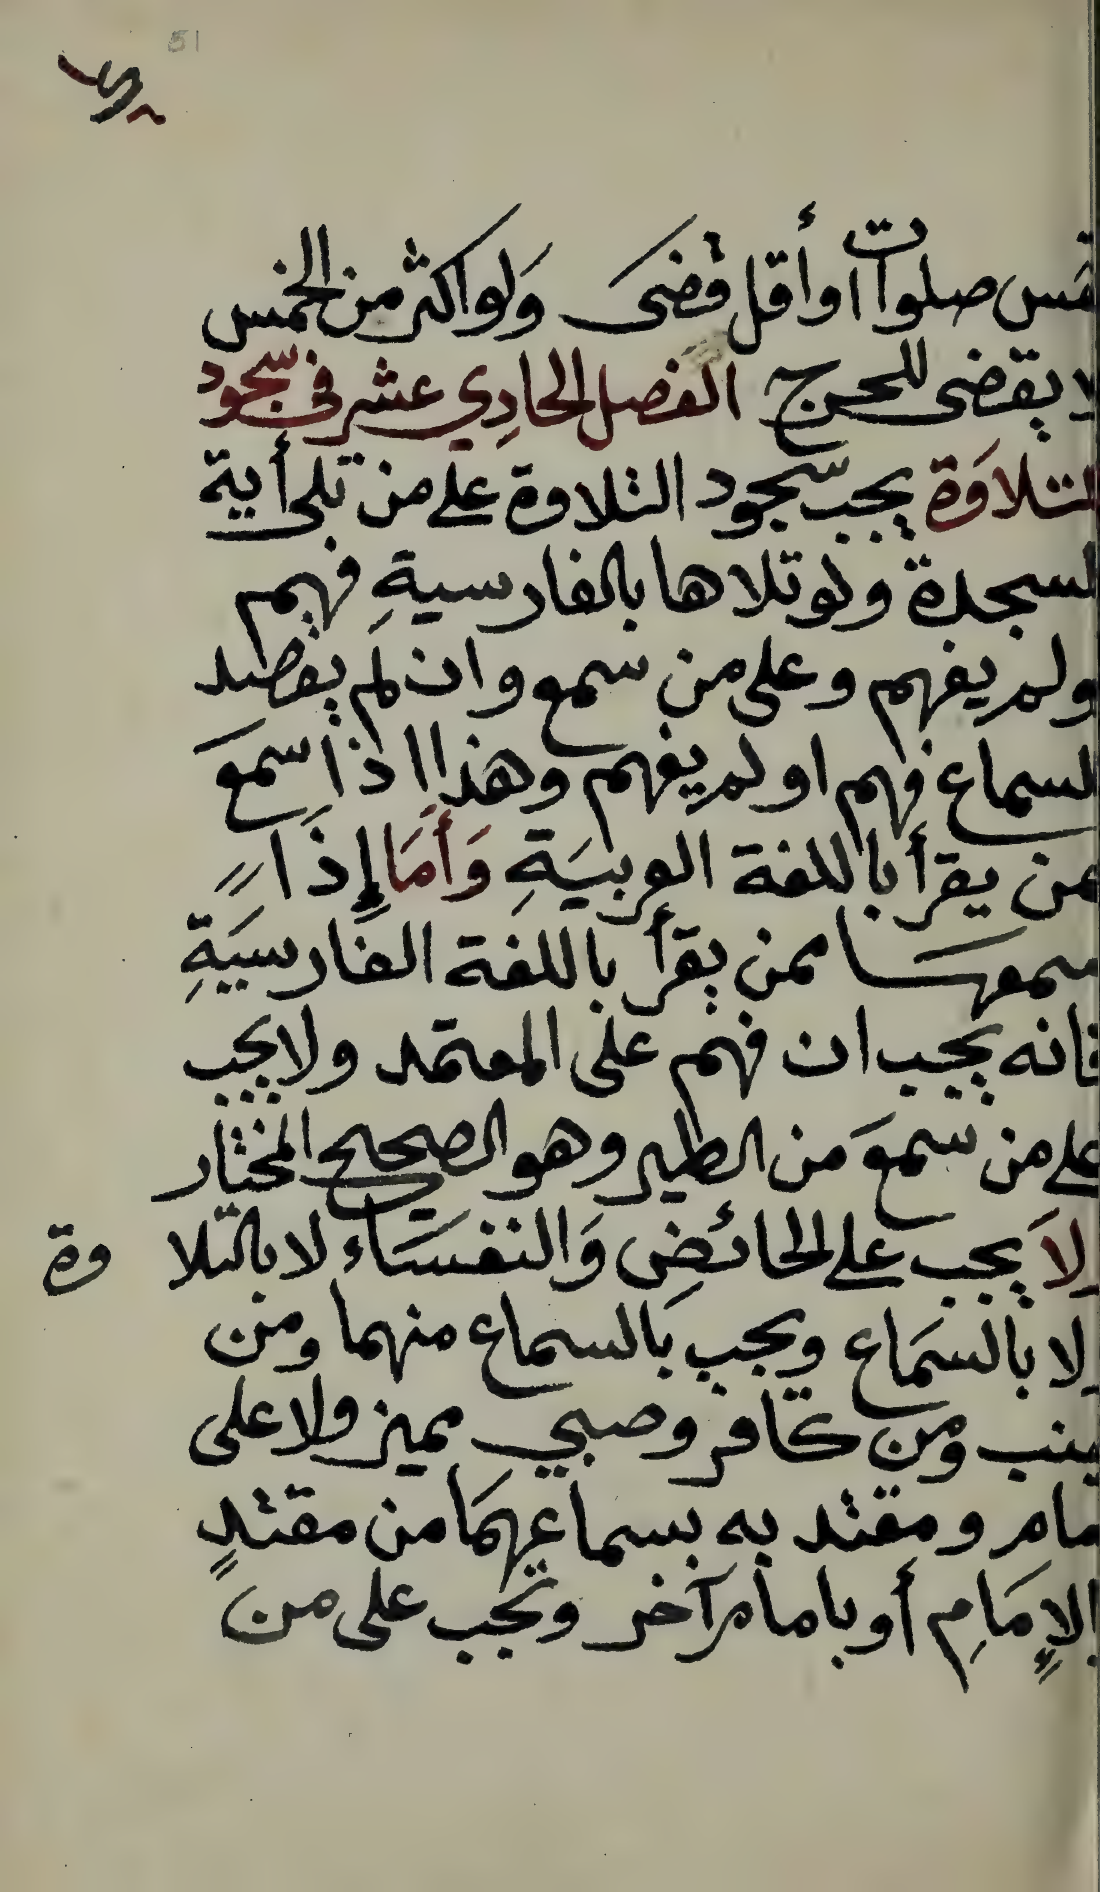 51
خمس صلوات اوأقل قضى ولواكثر من الخمس
لا يقضى للحرج الفصل الحادِي عشر فى سجود
التلاوَة يجب سجود التلاوة على من تلى أية
السجدة ولو تلاها بالفارسيةِ فهم
اولم يفهم وعلى من سمع وان لم يقصد
السماع فهم او لم يفهم وهذا اذا سمعَ
ممن يقرأ باللغة العربيَةِ وَأَمَا إِذَا
سمعهَا ممن يقرأ باللغة الفارسيَةِ
فانه يجب ان فهم على المعتمد ولا يجب
على من سمعَ من الطير وهو الصحيح المختار
ولاَ يجب على الحائضِ وَالنفسَاء لا بالتلاوة
ولا بالسمَاع ويجب بالسماع منهما ومن
جنب ومن كافر وصبي مميز ولا على
امام ومقتد به بسماعهمَا من مقتدٍ
بالإِمَامِ أو بامام آخر وتجب على من